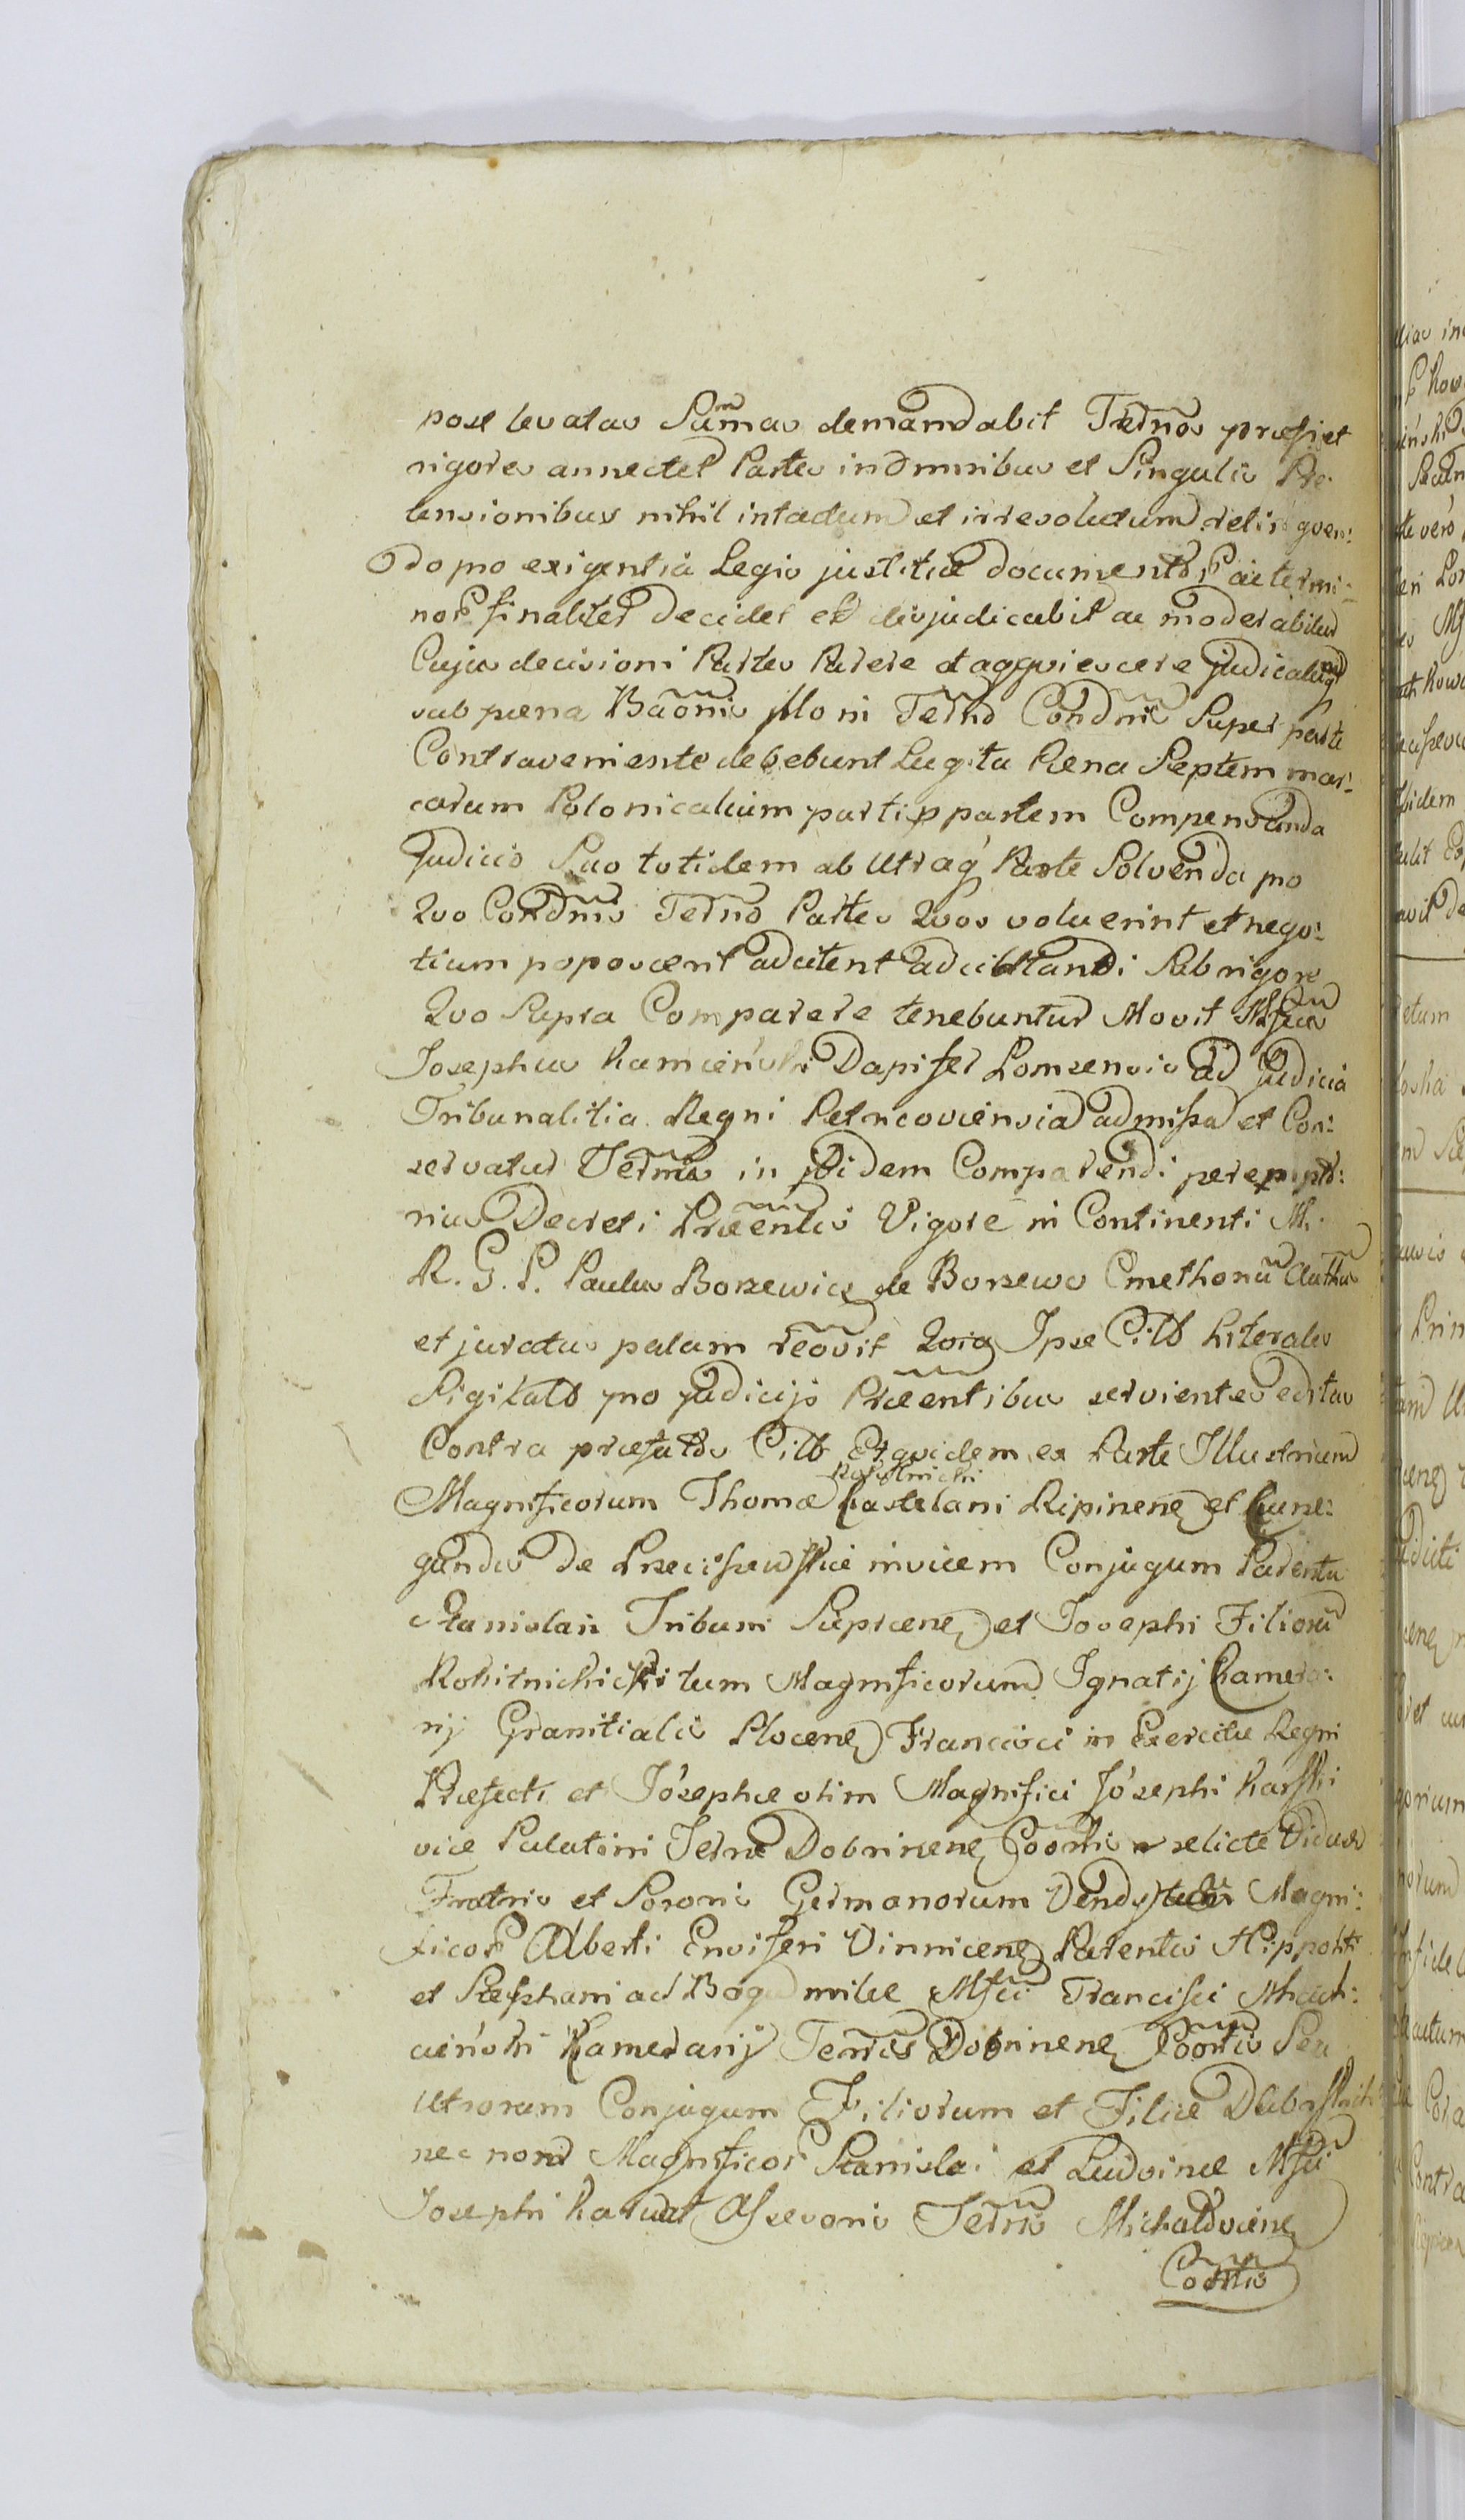 post levatas Sum̃as demandabit Termnos praefiet
rigores annectet Partes in omnibus et Singulis Prae
tensionibus nihil intactum et irresolutum relinquen:
do pro exigentia Legis justitiae documentor ac termi:
nor finaliter decidet et disjudicabit ac moderabitur
Cujus decisioni Partes Parere et acquiescere judicatum
sub paena Baõnis illo in Termno Condnis Super parte
Contraveniente debebunt Lucgta Paena Septem mar:
carum Polonicalium parti p partem Compensanda
Judicio Suo totidem ab Utraq Parte Solvenda pro
Quo Condnis Termno Partes Quos voluerint et nego:
tium poposcerit adcitent adcitandi Sub rigore
Quo Supra Comparere tenebuntur Movit Mfcus
Josephus Kamieński Dapifer Lomzensis ad Judicia
Tribunalitia Regni Petricoviensia admissa et Con:
servatur Termns in ibidem Comparendi perempto:
rius Decreti Praeentis Vigore in Continenti M.
R. G. P. Paulus Borzewicz de Borzewo Cmethonũ Authus
et juratus palam reõvit Quia Ipse Citt Literales
Sigilatt pro Judicijs Praeentibus servientes editas
Contra praefatos Citt Et quidem ex Parte Illustrium
Rokitnicki
Magnificorum Thomae Castelani Ripinens et Cune:
gundis de Przeciszewskie invicem Conjugum Parentũ
Stanislai Tribuni Sieprcens et Josephi Filiorũ
Rokitnickich tum Magnificorum Ignatij Camera:
rij Granitialis Plocens Francisci in Exercitu Regni
Praefecti et Józephae olim Magnifici Józephi Karski
vice Palatini Terrae Dobrinens Coortis relictae Viduae
Fratris et Sororis Germanorum Magni:
ficor Alberti Ensiferi Vinnicens Parentis Hippoliti
et Stephani ac Bogumilae Mfci Francisci
cieński Camerarij Terris Dobrinens Coortis Seu
Ultrorum Conjugum Filiorum et Filiae
nec non Magnificor Stanislai et Ludvinae Mfci
Josephi Karwat Assesoris Terris Michaloviens
Coortis